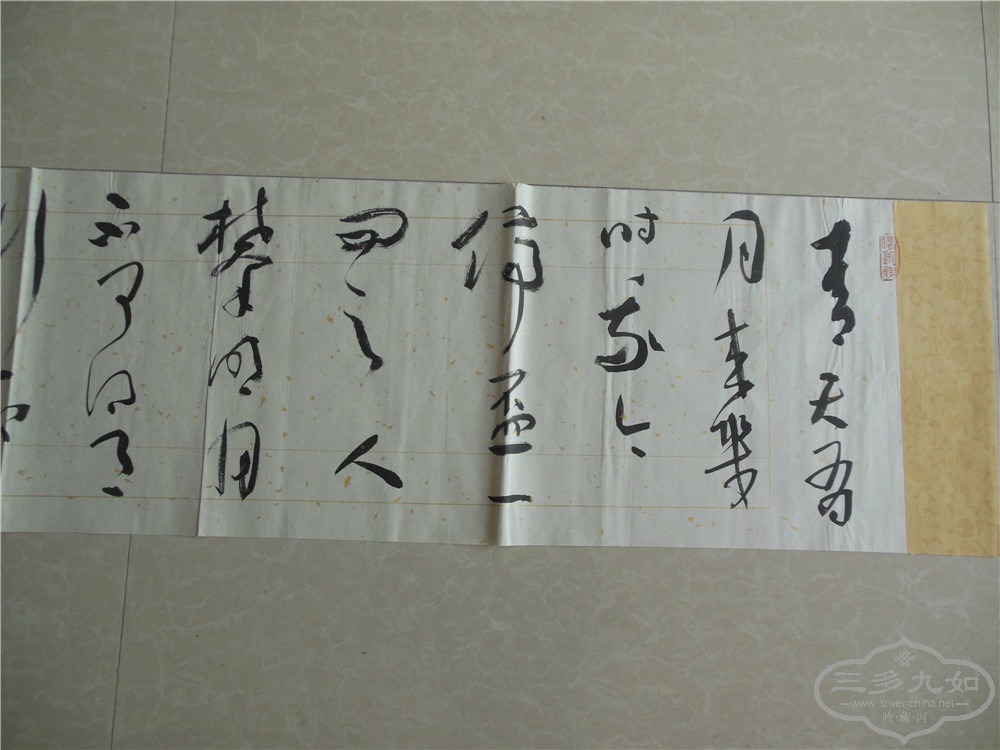 青天有
月来幾
时我今
停盃一
問之人
攀明月
不可得月
三多九如
www.silver-china.net
收·藏·网